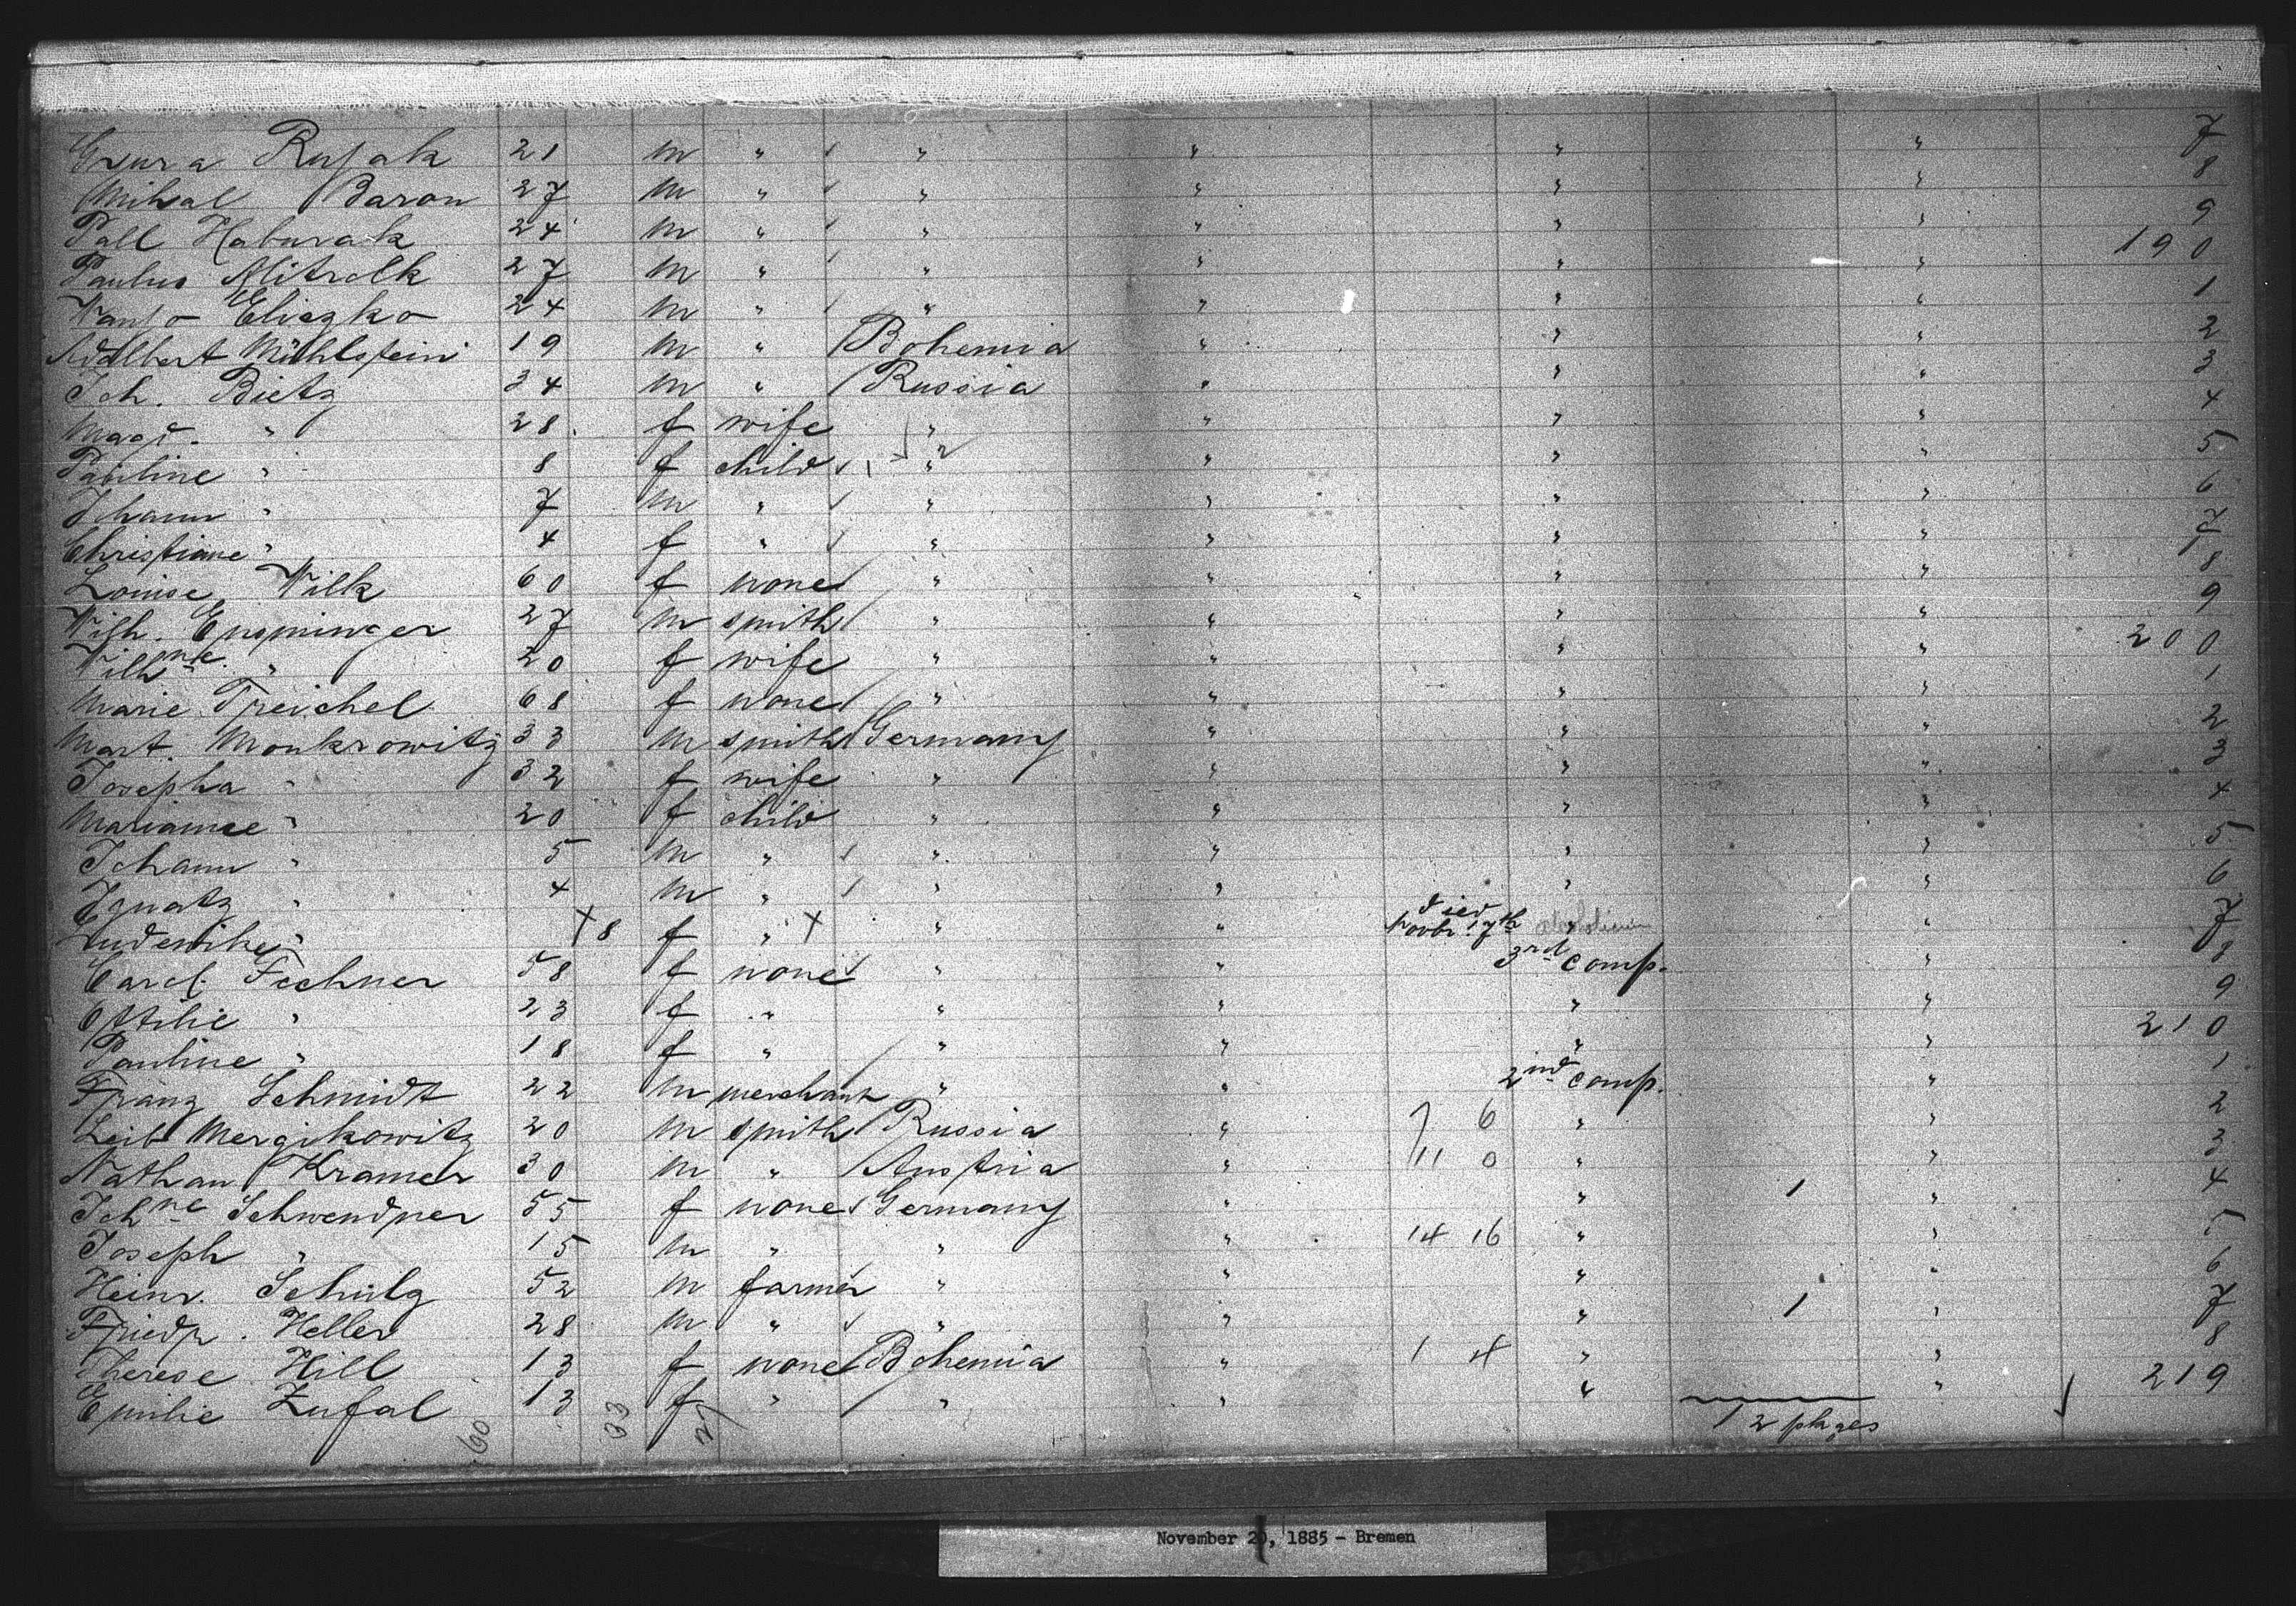 Rusak 21 m " " " " " 7
Mihal Baron 27 m " " " " " 8
Pall Haburak 24 m " " " " " 9
Paulus Mitrelk 27 m " " " " " 190
Wanjo Eliezko 24 m " " " " " 1
Adelbert Mühlstein 19 m " Bohemia " " " 2
Joh. Bietz 34 m " Russia " " " 3
Magd. " 28 f wife " " " " 4
Pauline " 8 f child " " " " 5
Johann " 7 m " " " " " 6
Christiane " 4 f " " " " " 7
Louise Wilk 60 f none " " " " 8
Wilh. Ensminger 27 m smith " " " " 9
Wilhne " 20 f wife " " " " 200
Marie Treichel 68 f none " " " " 1
Mart. Monkrowitz 33 m smith Germany " " " 2
Josepha " 32 f wife " " " " 3
Marianne " 20 f child " " " " 4
Johann " 5 m " " " " " 5
Ignatz " 4 m " " " " " 6
Ludewike " † 8 f " † " " died Novbr. 17th " " 7
Carol. Fechner 58 f none " " 3rd comp. " 8
Ottilie " 23 f " " " " " 9
Pauline " 18 f " " " " " 210
Franz Schmidt 22 m merchant " " 2nd comp. " 1
Leib Mergikowitz 20 m smith Russia " 7 6 " " 2
Nathan Kramer 30 m " Austria " 11 0 " " 3
Johne Schwendner 55 f none Germany " " 1 " 4
Joseph " 15 m " " " 14 16 " " 5
Heinr. Schulz 52 m farmer " " " " 6
Friedr. Heller 28 m " " " " 1 " 7
Therese Hill 13 f none Bohemia " 1 4 " " 8
Emilie Zufal 13 f " " " " " 219
60 33 27 12 pkages
November 20, 1885 - Bremen